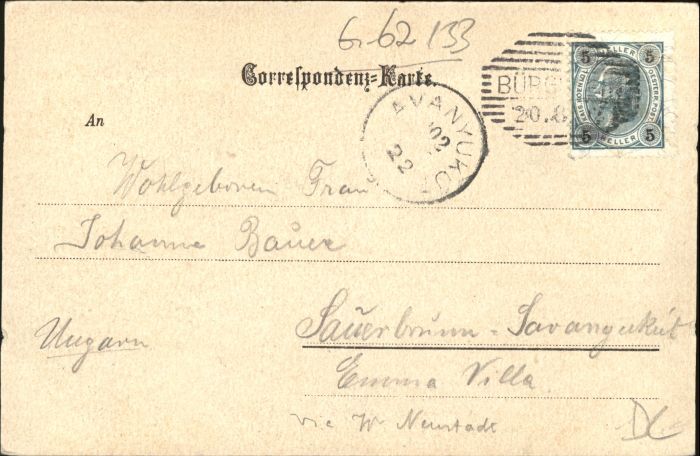 6.62 133
Correspondenz-Karte.
An
AVANYUKU
902
22
BÜRG
20.8
5 HELLER 5
5 HELLER 5
Wohlgeboren Frau
Johanna Bauer
Ungarn
Sauerbrunn-Savanyukút
Emma Villa
via W. Neustadt